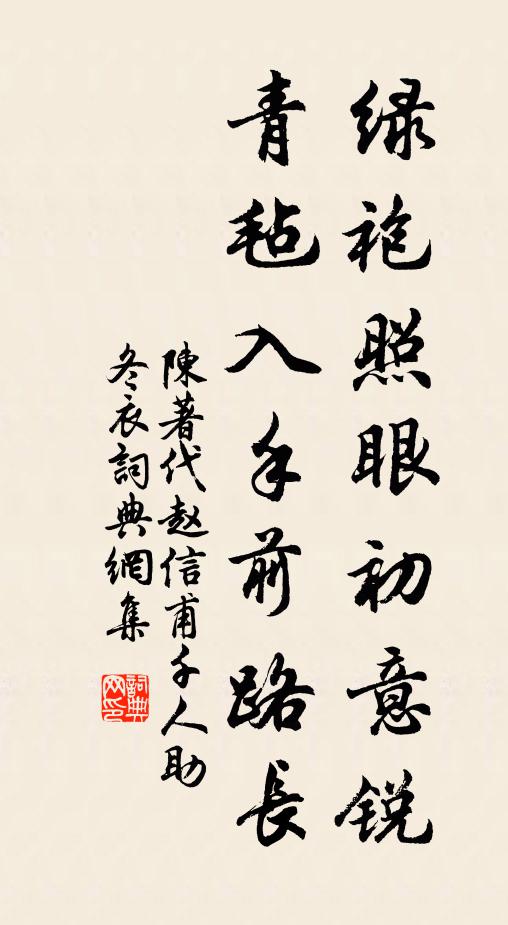 绿袍照眼初意锐
青毡入手前路長
陳著代赵信甫千人助
冬衣詞典網集
詞典网印